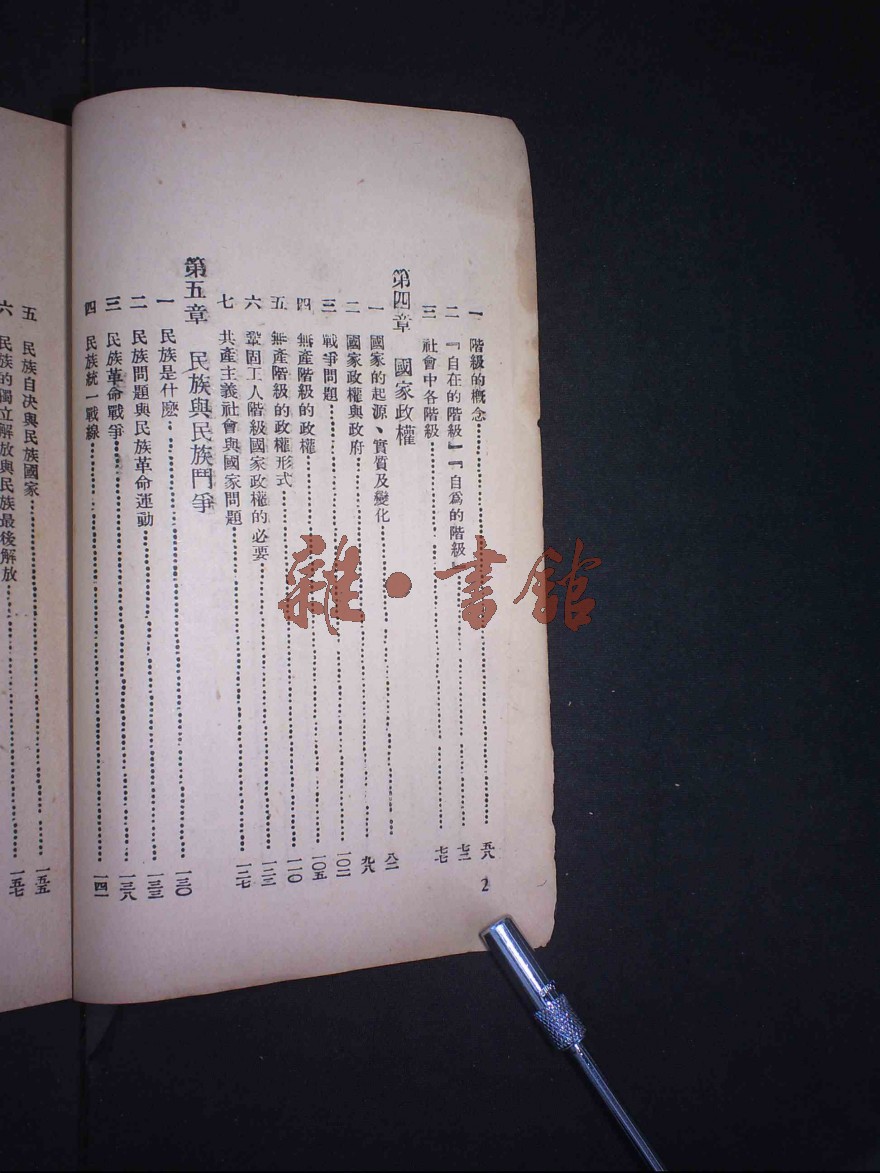 一 階級的概念 五八
二 『自在的階級』『自爲的階級』 七三
三 社會中各階級 七七
第四章 國家政權
一 國家的起源、實質及變化 八二
二 國家政權與政府 九八
三 戰爭問題 一〇二
四 無產階級的政權 一〇五
五 無產階級的政權形式 一一〇
六 鞏固工人階級國家政權的必要 一二三
七 共產主義社會與國家問題 一二七
第五章 民族與民族鬥爭
一 民族是什麽 一三〇
二 民族問題與民族革命運動 一三三
三 民族革命戰爭 一三八
四 民族統一戰線 一四一
2
五 民族自决與民族國家 一五五
六 民族的獨立解放與民族最後解放 一五七
雜·書館